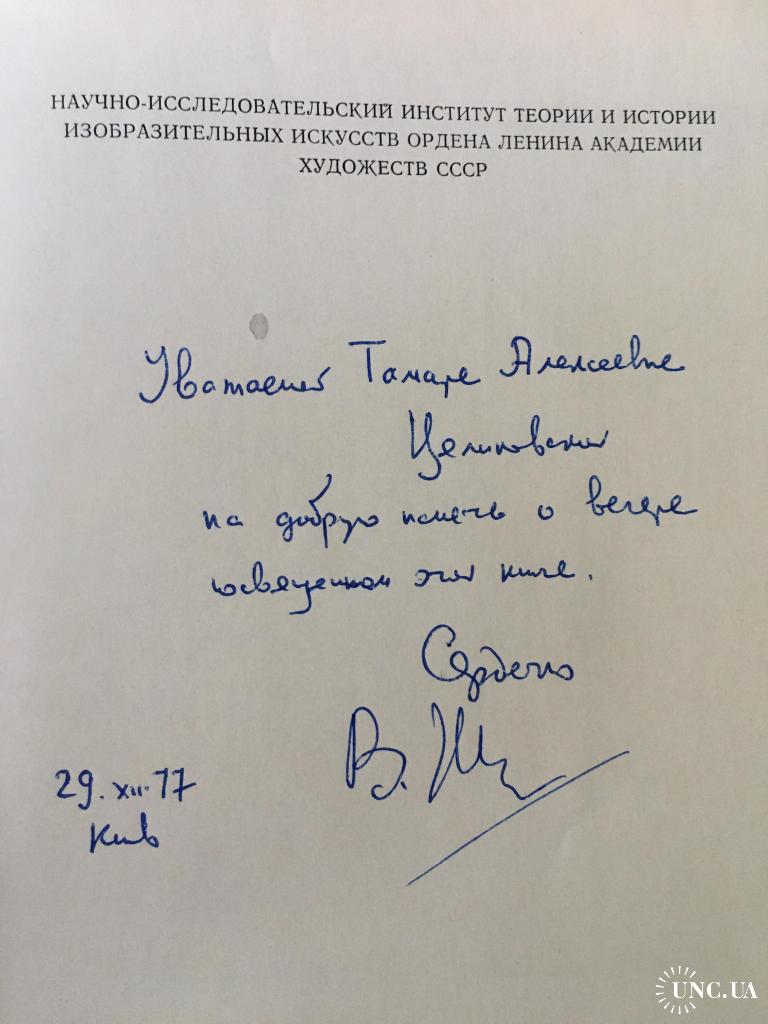 НАУЧНО-ИССЛЕДОВАТЕЛЬСКИЙ ИНСТИТУТ ТЕОРИИ И ИСТОРИИ
ИЗОБРАЗИТЕЛЬНЫХ ИСКУССТВ ОРДЕНА ЛЕНИНА АКАДЕМИИ
ХУДОЖЕСТВ СССР
Уважаемой Тамаре Алексеевне
Целиковской
на добрую память о вечере
посвященном этой книге.
Сердечно
В.
29. XII. 77
Киев
UNC.UA